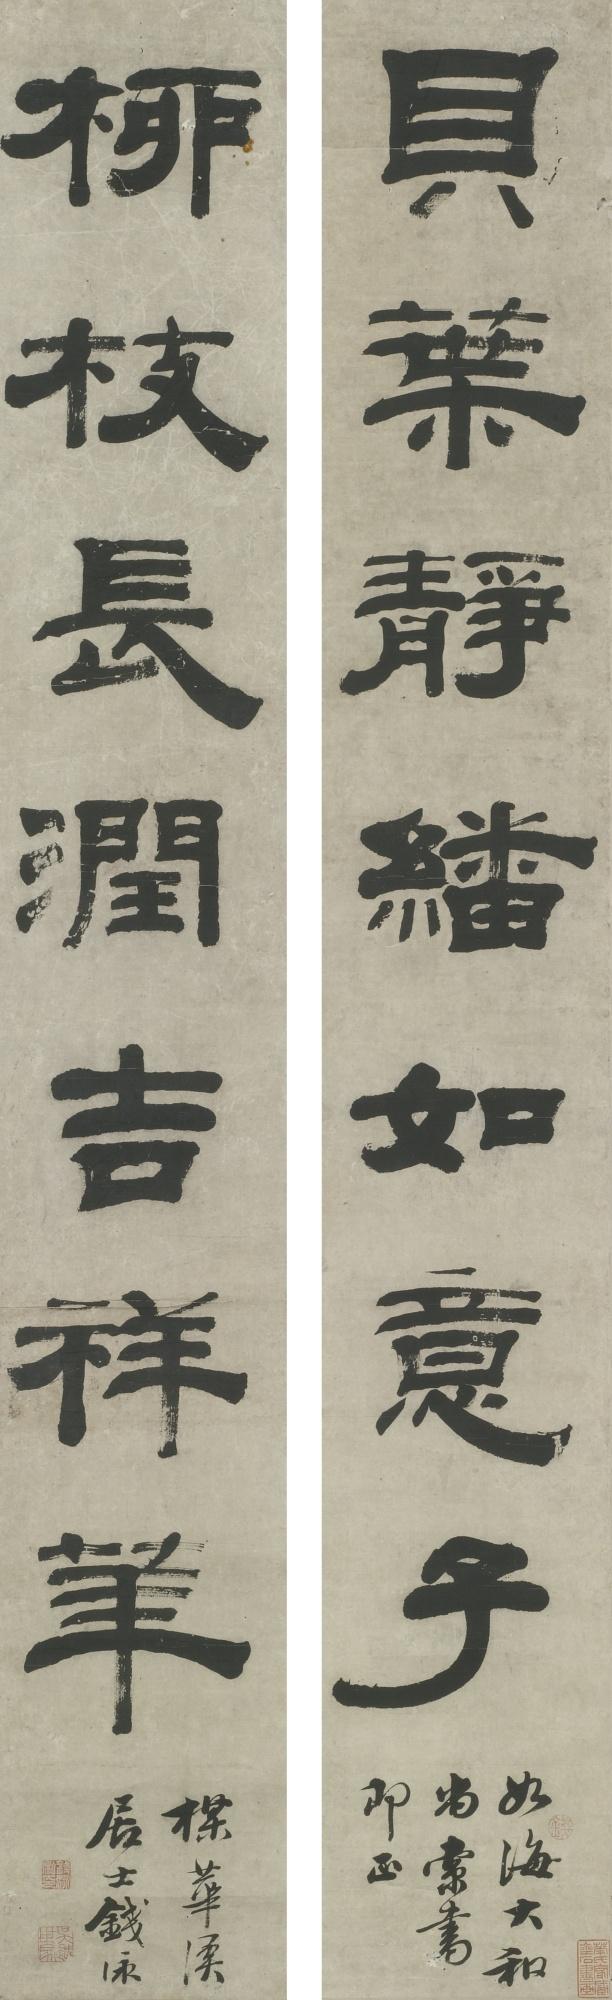 貝葉靜繙如意子
如海大和
尚索書
即正
柳枝長潤吉祥華
楳華溪
居士錢泳